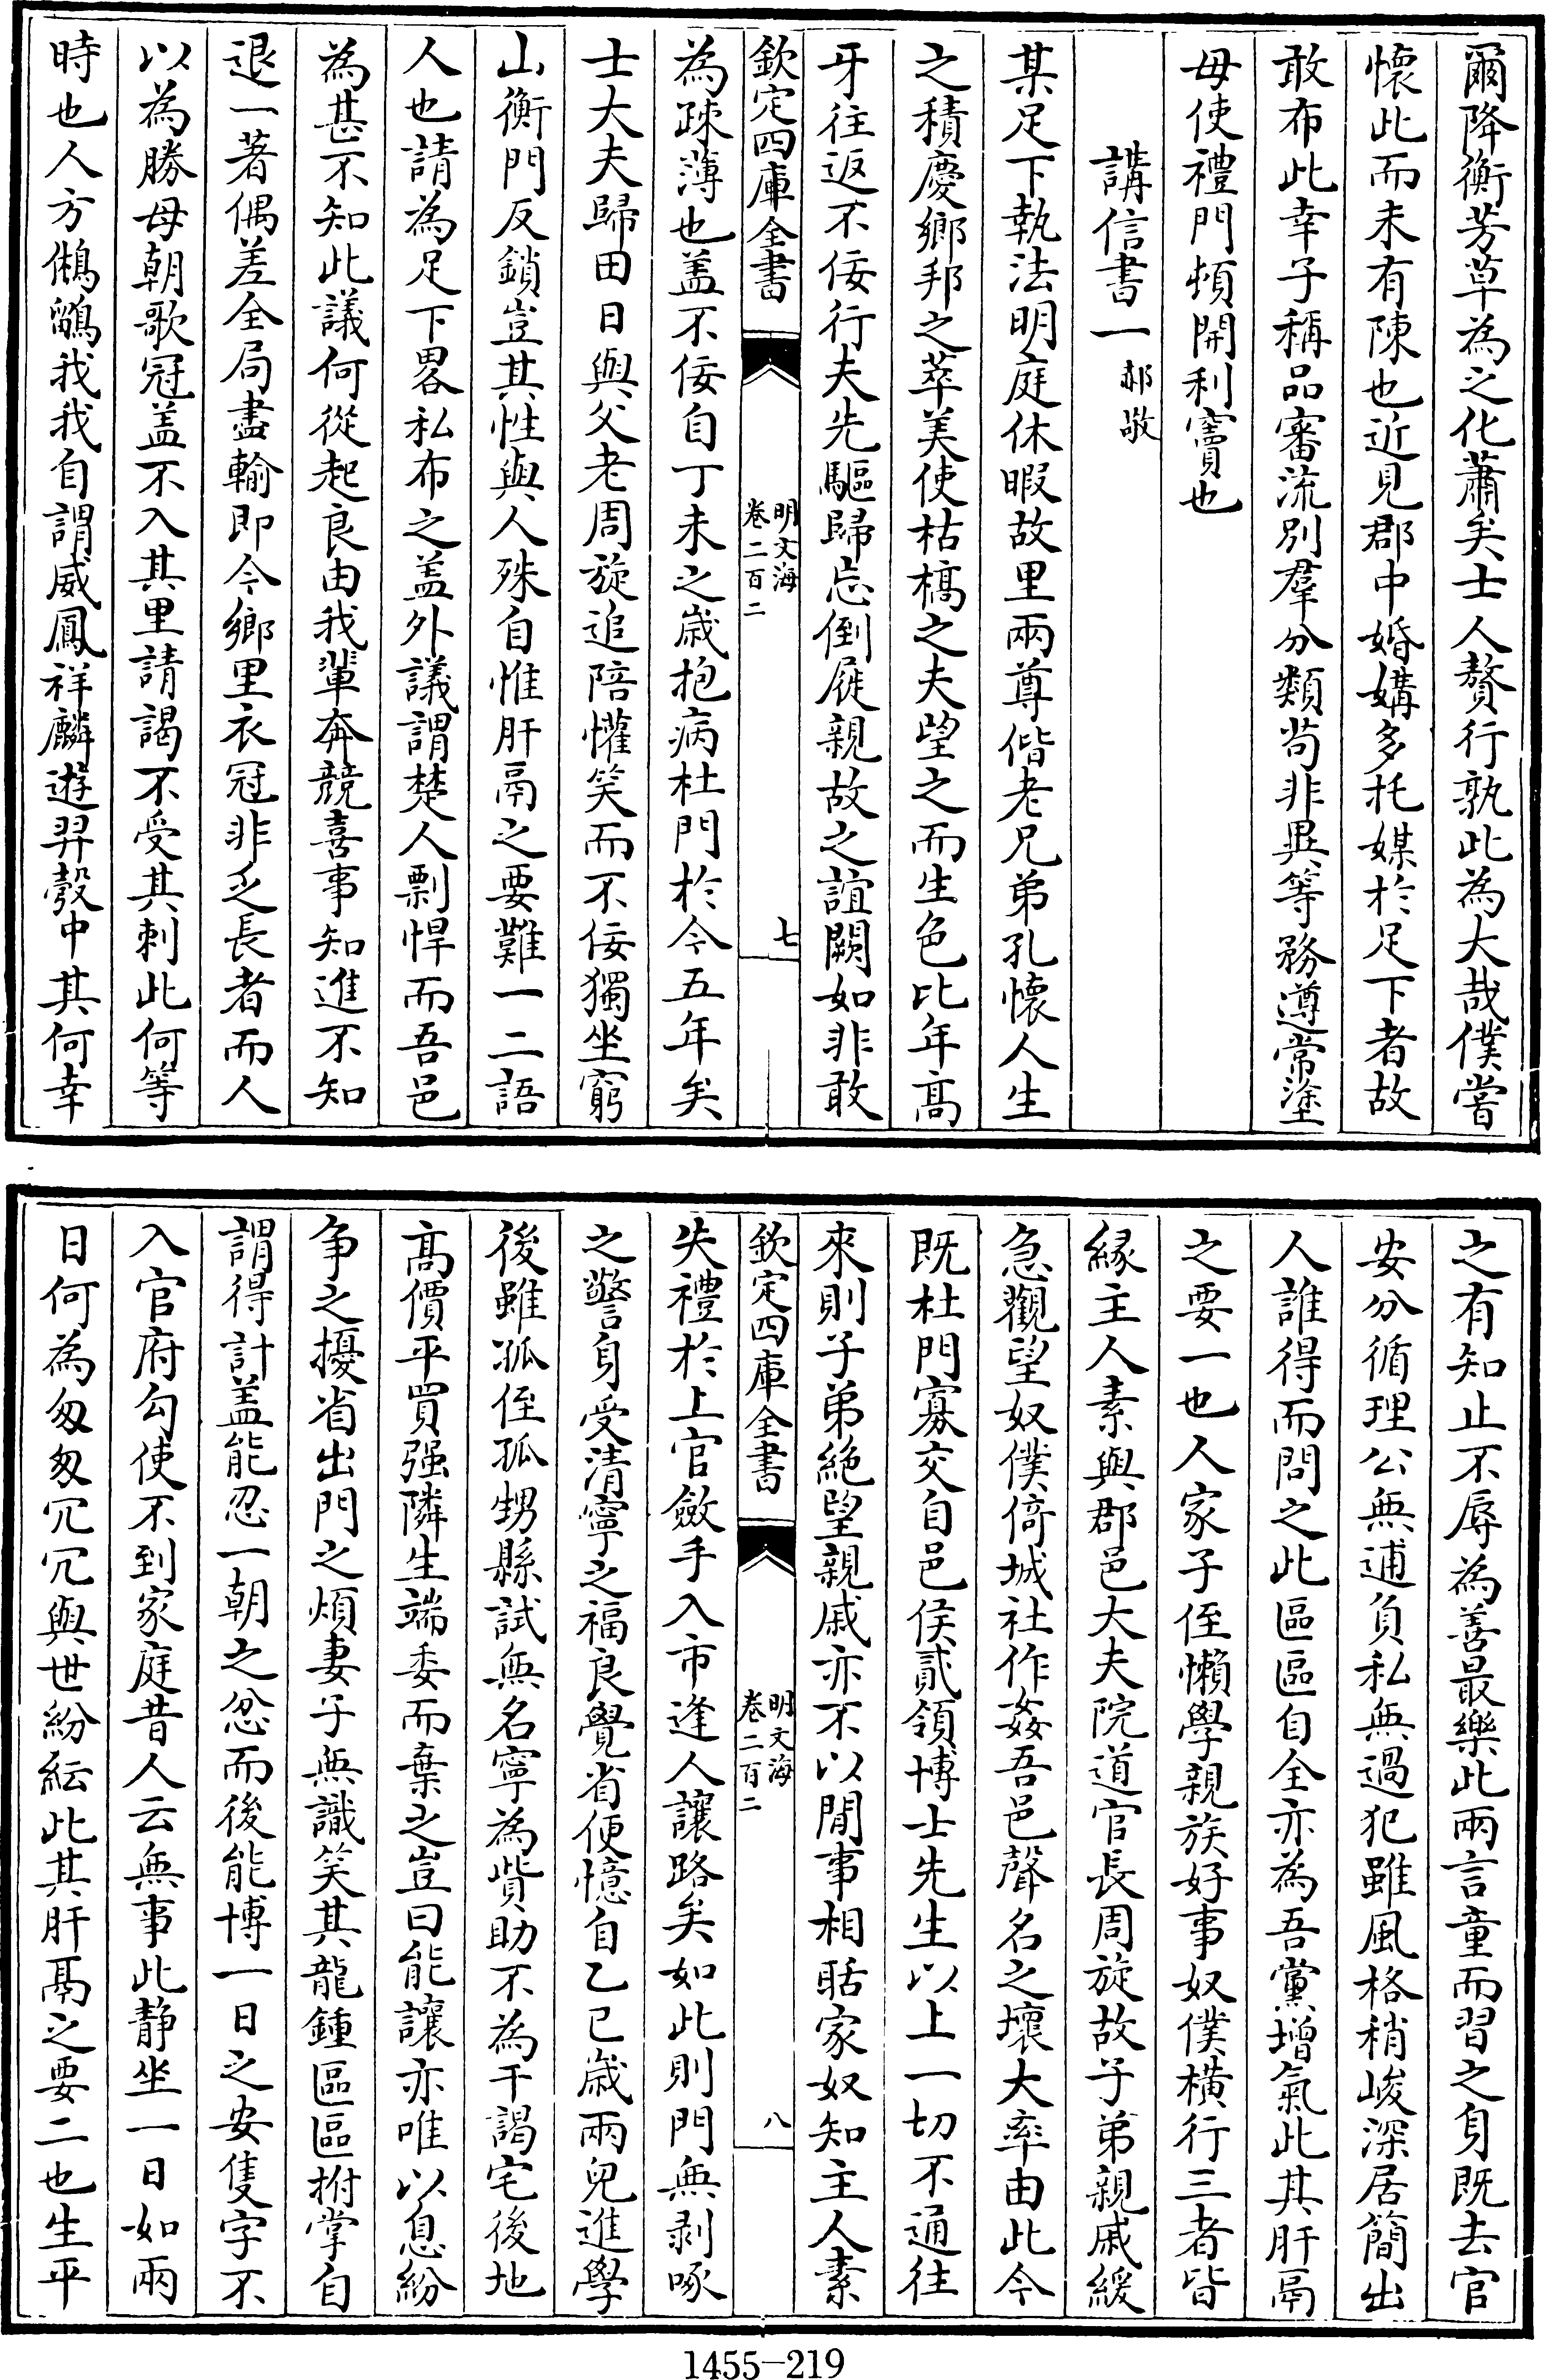 爾降衡芳草為之化蕭矣士人贅行孰此為大哉僕嘗
懷此而未有陳也近見郡中婚媾多托媒於足下者故
敢布此幸子稱品審流别羣分類茍非異等務遵常塗
毋使禮門頓開利竇也
講信書一郝敬
某足下執法明庭休暇故里兩尊偕老兄弟孔懷人生
之積慶鄉邦之萃美使枯槁之夫望之而生色比年髙
牙往返不佞行夫先驅歸忘倒屣親故之誼闕如非敢
欽定四庫全書
明文海
卷二百二
七
為疎薄也盖不佞自丁未之嵗抱病杜門於今五年矣
士大夫歸田日與父老周旋追陪懽笑而不佞獨坐窮
山衡門反鎖豈其性與人殊自惟肝鬲之要難一二語
人也請為足下畧私布之盖外議謂楚人剽悍而吾邑
為甚不知此議何從起良由我輩奔競喜事知進不知
退一著偶差全局盡輸即今鄉里衣冠非乏長者而人
以為勝母朝歌冠盖不入其里請謁不受其刺此何等
時也人方鵂鶹我我自謂威鳳祥麟遊羿彀中其何幸
之有知止不辱為善最樂此兩言童而習之身既去官
安分循理公無逋負私無過犯雖風格稍峻深居簡出
人誰得而問之此區區自全亦為吾黨增氣此其肝鬲
之要一也人家子侄懶學親族好事奴僕横行三者皆
緣主人素與郡邑大夫院道官長周旋故子弟親戚緩
急觀望奴僕倚城社作姦吾邑聲名之壞大率由此今
既杜門寡交自邑侯貳領博士先生以上一切不通往
來則子弟絶望親戚亦不以閒事相聒家奴知主人素
欽定四庫全書
明文海
卷二百二
八
失禮於上官斂手入市逢人讓路矣如此則門無剥啄
之警身受清寧之福良覺省便憶自乙巳嵗兩兒進學
後雖孤侄孤甥縣試無名寧為貲助不為干謁宅後地
髙價平買强隣生端委而棄之豈曰能讓亦唯以息紛
争之擾省出門之煩妻子無識笑其龍鍾區區拊掌自
謂得計盖能忍一朝之忿而後能博一日之安隻字不
入官府勾使不到家庭昔人云無事此静坐一日如兩
日何為匆匆冗冗與世紛紜此其肝鬲之要二也生平
1455-219